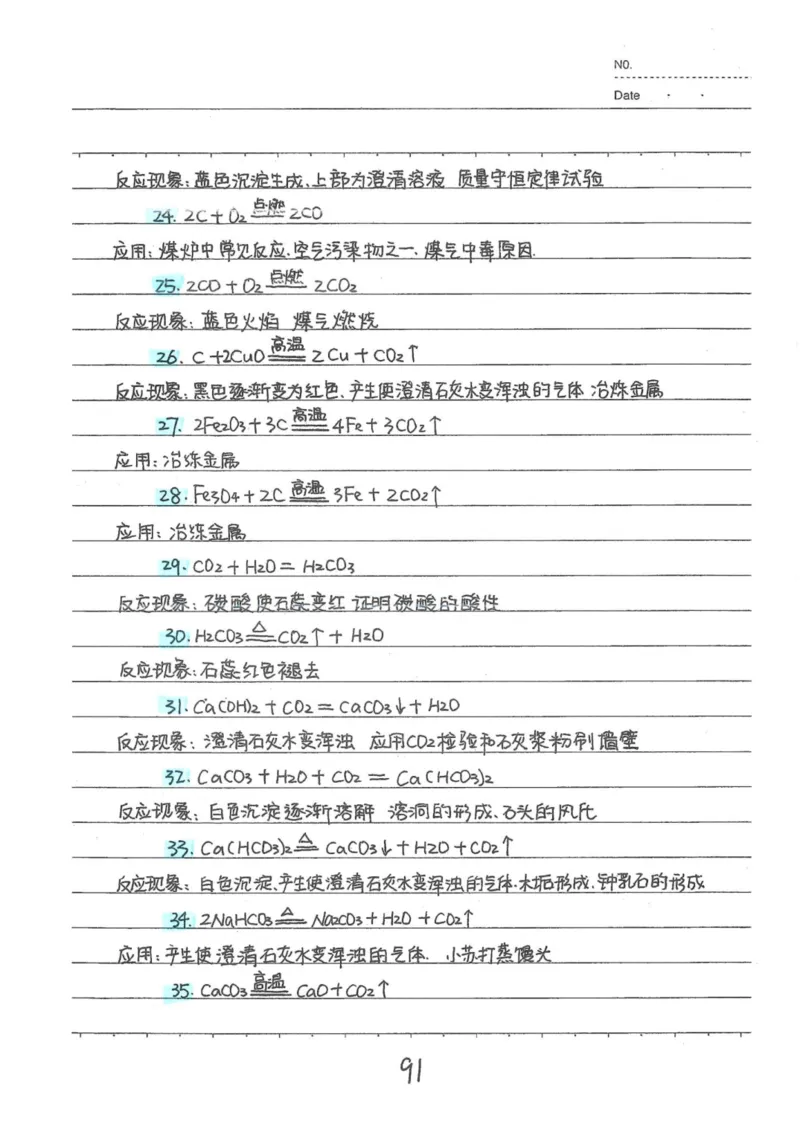 NO.
Date
反应现象:蓝色沉淀生成、上部为澄清溶液 质量守恒定律试验
24. 2C+O2 点燃 2CO
应用:煤炉中常见反应、空气污染物之一、煤气中毒原因.
25. 2CO+O2 点燃 2CO2
反应现象:蓝色火焰 煤气燃烧
26. C+2CuO 高温 2Cu+CO2↑
反应现象:黑色逐渐变为红色、产生使澄清石灰水变浑浊的气体 冶炼金属
27. 2Fe2O3+3C 高温 4Fe+3CO2↑
应用:冶炼金属
28. Fe3O4+2C 高温 3Fe+2CO2↑
应用:冶炼金属
29. CO2+H2O=H2CO3
反应现象:碳酸使石蕊变红 证明碳酸的酸性
30. H2CO3 △ CO2↑+H2O
反应现象:石蕊红色褪去
31. Ca(OH)2+CO2=CaCO3↓+H2O
反应现象:澄清石灰水变浑浊 应用CO2检验和石灰浆粉刷墙壁
32. CaCO3+H2O+CO2=Ca(HCO3)2
反应现象:白色沉淀逐渐溶解 溶洞的形成、石头的风化
33. Ca(HCO3)2 △ CaCO3↓+H2O+CO2↑
反应现象:白色沉淀、产生使澄清石灰水变浑浊的气体.水垢形成.钟乳石的形成
34. 2NaHCO3 △ Na2CO3+H2O+CO2↑
应用:产生使澄清石灰水变浑浊的气体. 小苏打蒸馒头
35. CaCO3 高温 CaO+CO2↑
91